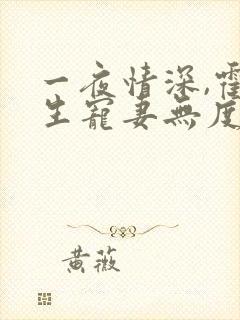 一夜情深,霍
生寵妻無度
黃薇